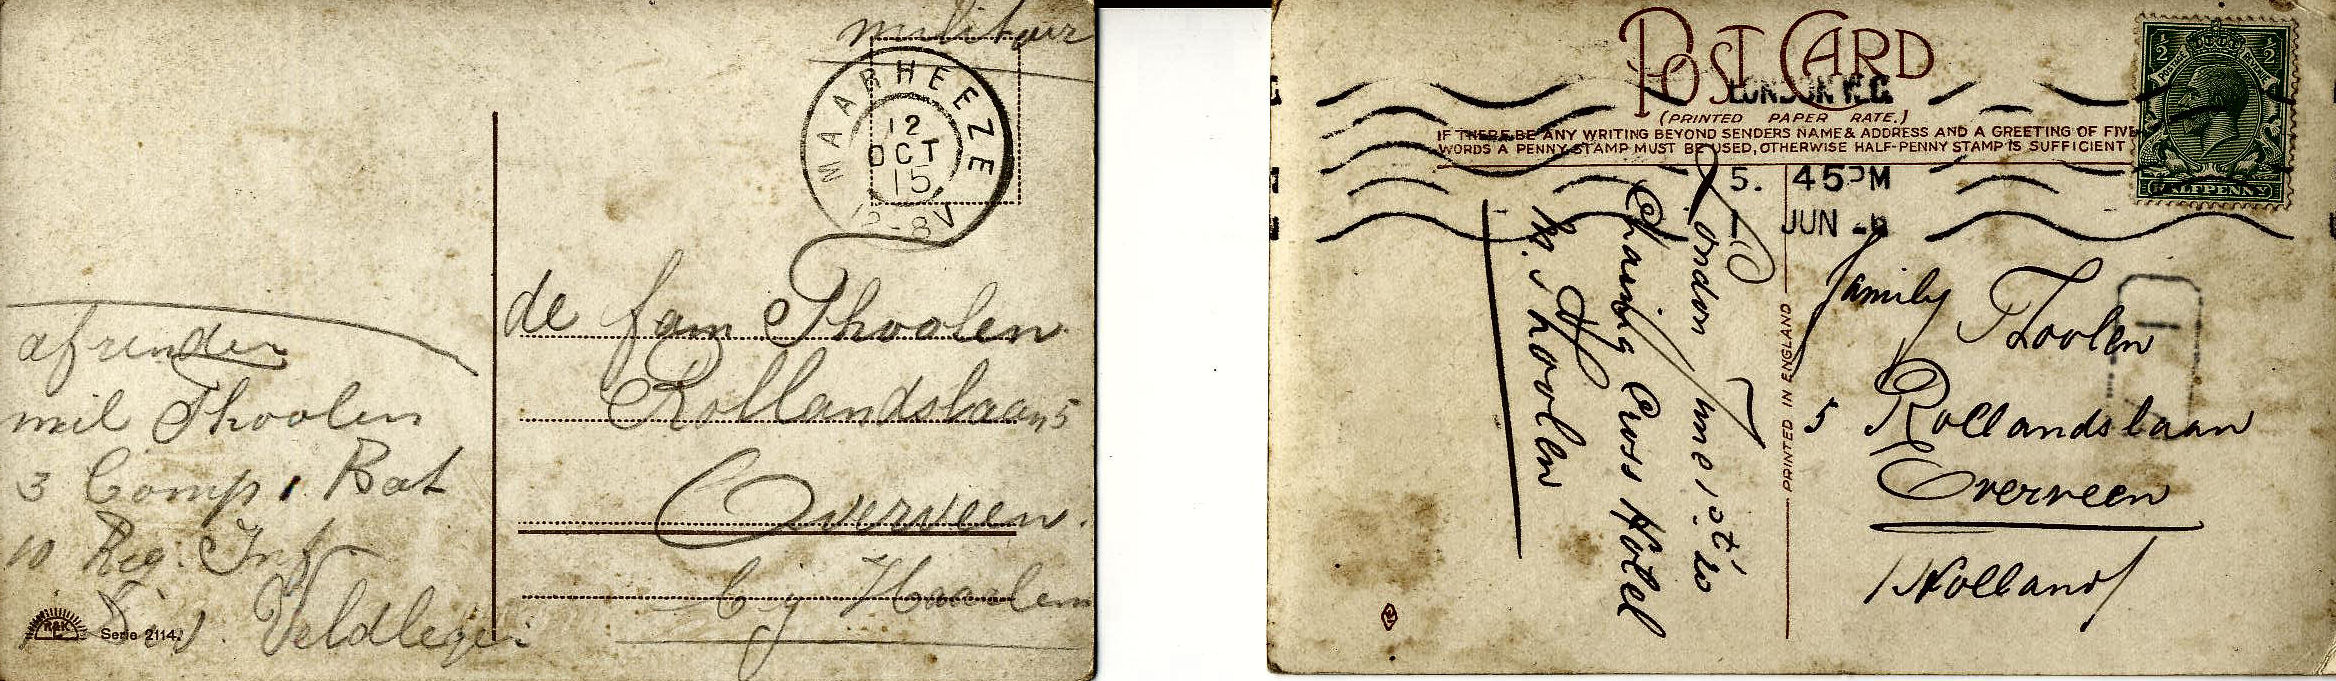 militair
MAARHEEZE
12
OCT
15
12-8V
de fam Thoolen
Rollandslaan 5
Overveen.
bij Haarlem
afzender
mil Thoolen
3 Comp 1 Bat
10 Reg. Inf.
Veldleger
R&K
Serie 2114.
POST CARD
(PRINTED PAPER RATE.)
IF THERE BE ANY WRITING BEYOND SENDERS NAME & ADDRESS AND A GREETING OF FIVE
WORDS A PENNY STAMP MUST BE USED, OTHERWISE HALF-PENNY STAMP IS SUFFICIENT
LONDON W.C.
5. 45PM
1 JUN
½ ½
POSTAGE REVENUE
HALFPENNY
London June 1st
Charing Cross Hotel
Thoolen
PRINTED IN ENGLAND
family Thoolen
5 Rollandslaan
Overveen
Holland